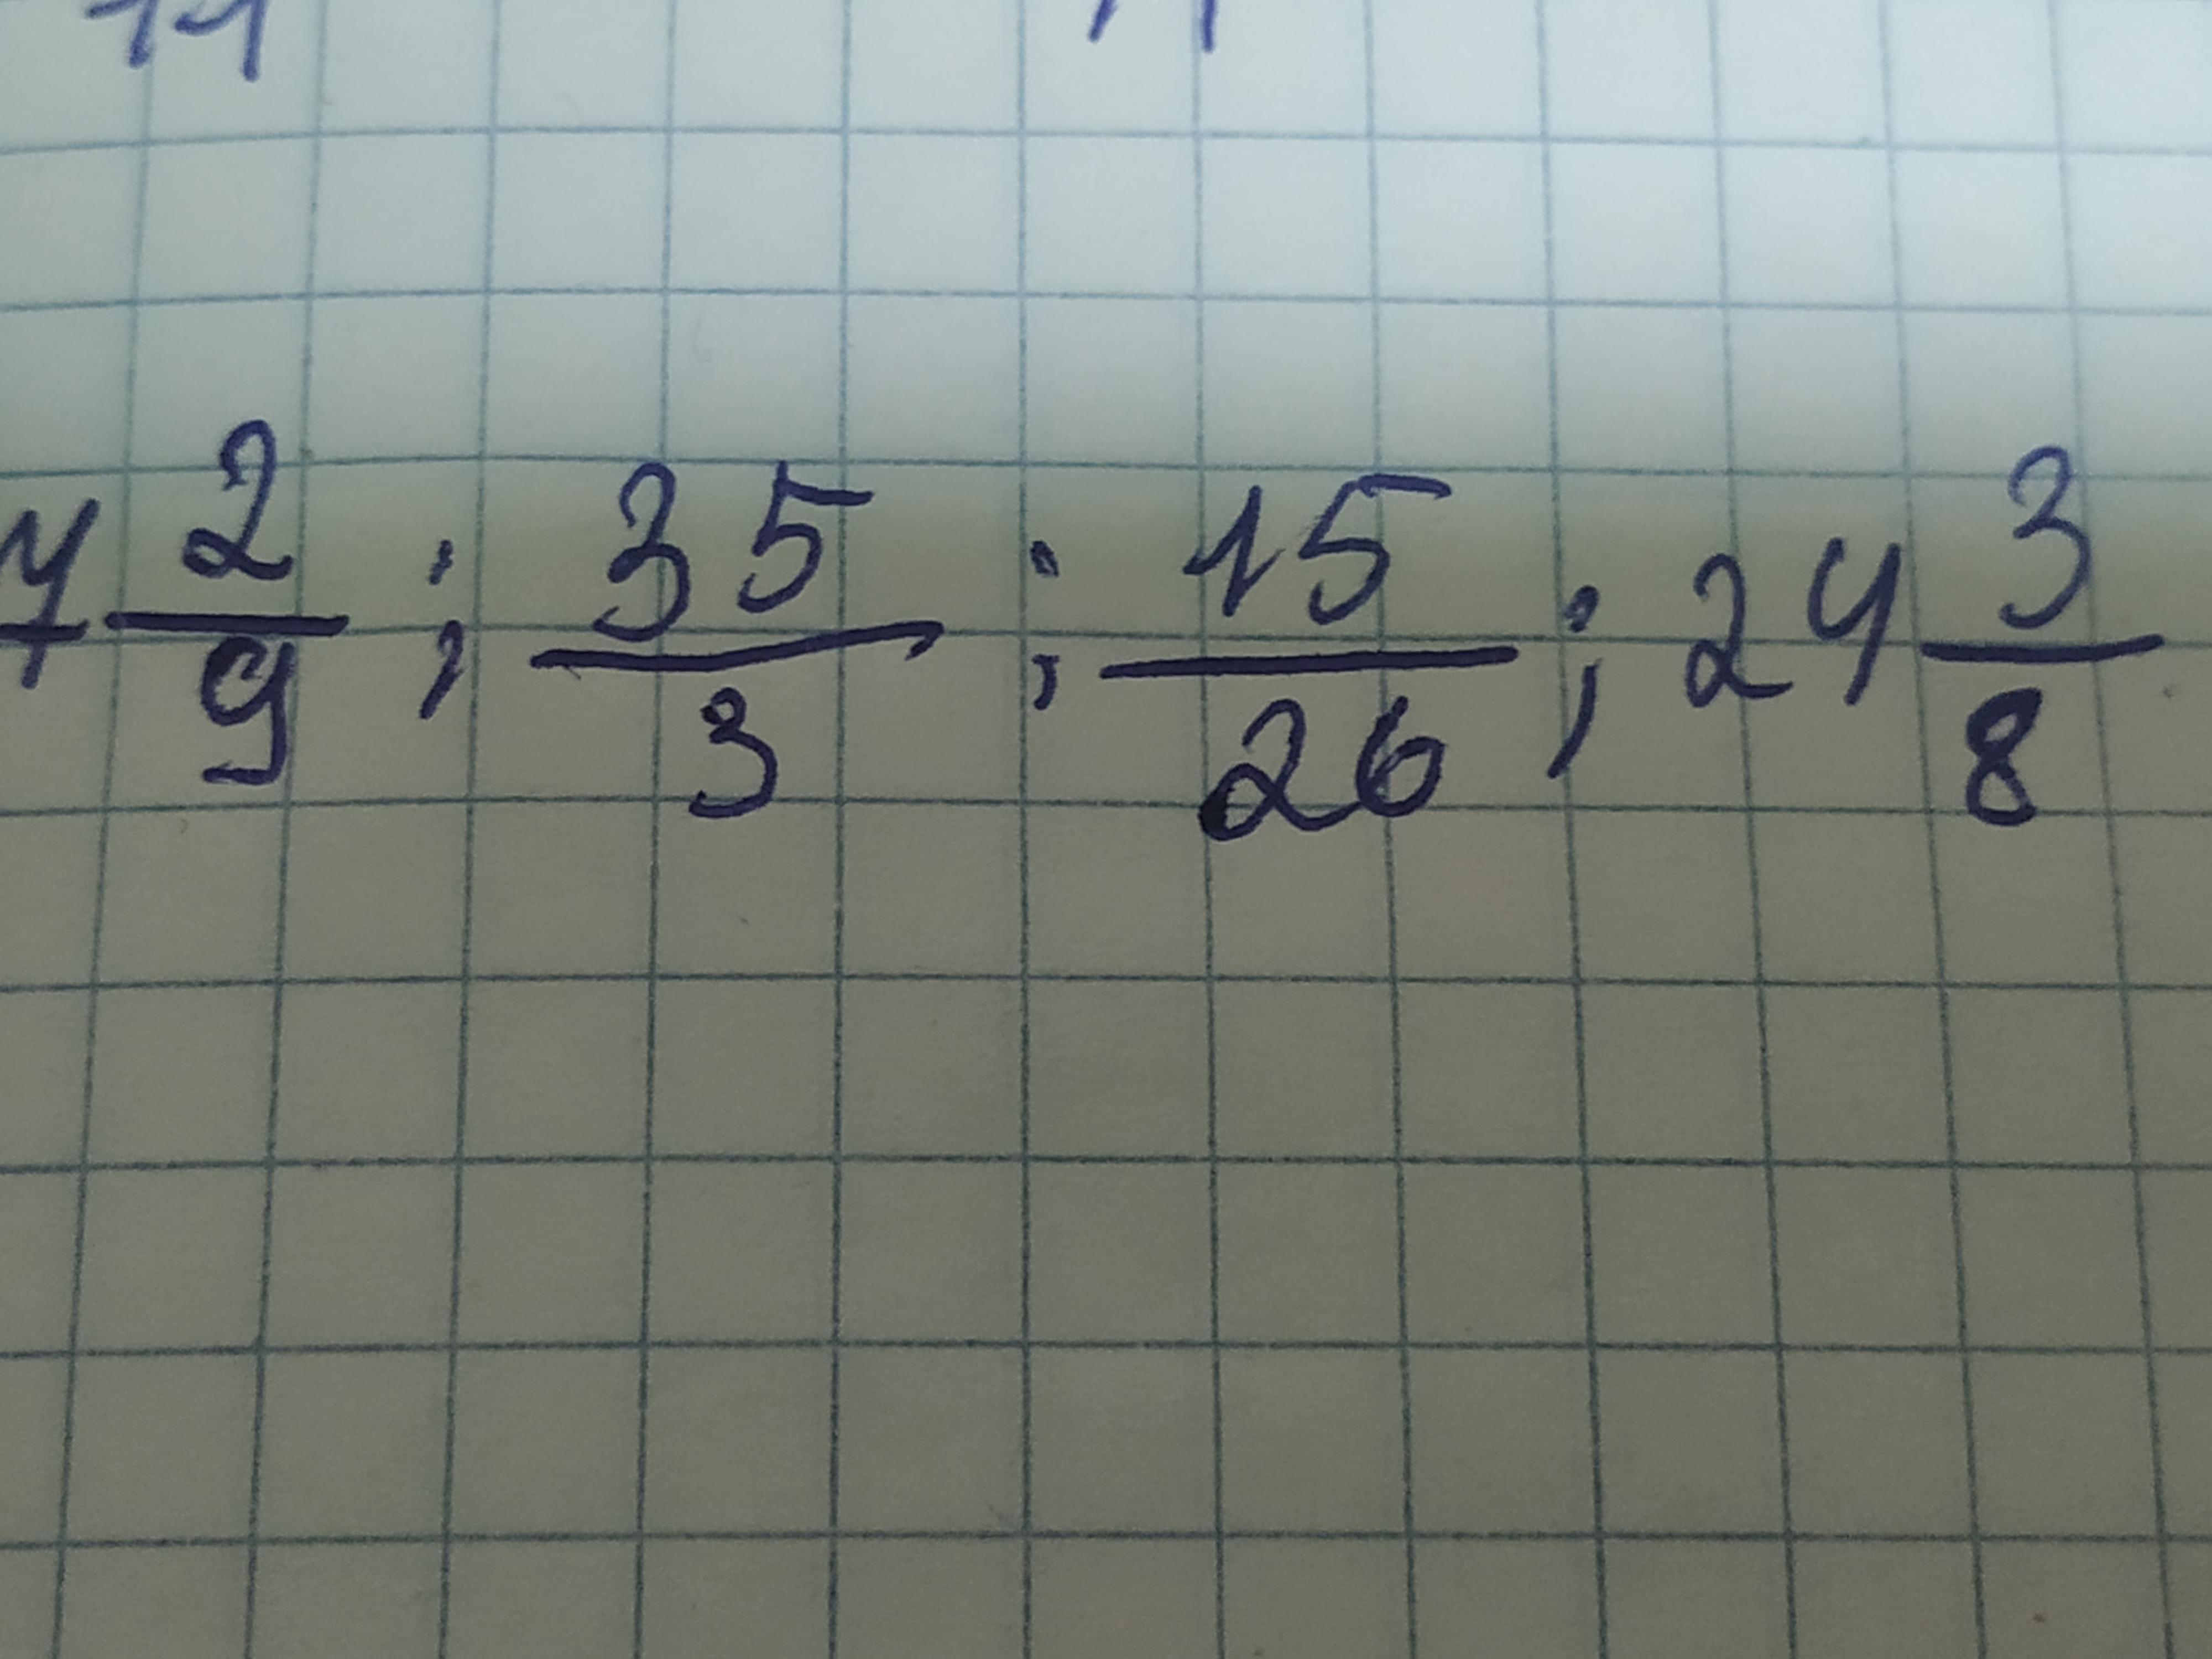 7 2/9 ; 35/3 ; 15/26 ; 24 3/8